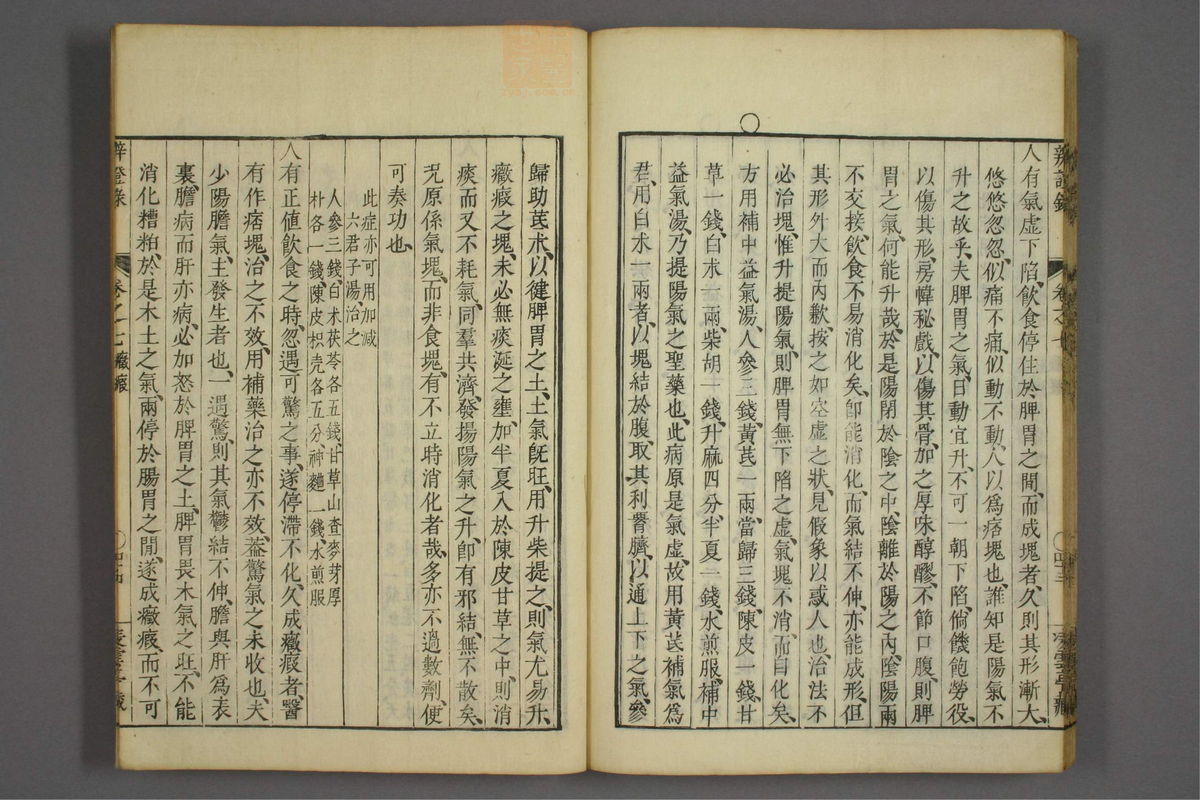 人有氣虛下陷、飲食停住於脾胃之間而成塊者、久則其形漸大、
悠悠忽忽、似痛不痛、似動不動、人以爲痞塊也、誰知是陽氣不
升之故乎、夫脾胃之氣、日動宜升、不可一朝下陷、倘饑飽勞役、
以傷其形、房幃秘戲、以傷其骨、加之厚味醇醪、不節口腹、則脾
胃之氣、何能升哉、於是陽閉於陰之中、陰離於陽之內、陰陽兩
不交接、飲食不易消化矣、卽能消化、而氣結不伸、亦能成形、但
其形外大而內歉、按之如空虛之狀、見假象以惑人也、治法不
必治塊、惟升提陽氣、則脾胃無下陷之虛、氣塊不消而自化矣、
方用補中益氣湯、人參三錢、黃芪一兩、當歸三錢、陳皮一錢、甘
草一錢、白朮一兩、柴胡一錢、升麻四分、半夏一錢、水煎服、補中
益氣湯、乃提陽氣之聖藥也、此病原是氣虛、故用黃芪補氣爲
君、用白朮一兩者、以塊結於腹、取其利臍、以通上下之氣、參
歸助芪朮、以健脾胃之土、土氣旣旺、用升柴提之、則氣尤易升、
癥瘕之塊、未必無痰涎之壅、加半夏入於陳皮甘草之中、則消
痰而又不耗氣、同羣共濟、發揚陽氣之升、卽有邪結、無不散矣、
況原係氣塊、而非食塊、有不立時消化者哉、多亦不過數劑、便
可奏功也、
此症亦可用加減
六君子湯、治之
人參三錢、白朮茯苓各五錢、甘草山查麥芽厚
朴各一錢、陳皮枳壳各五分、神麯一錢、水煎服
人有正值飲食之時、忽遇可驚之事、遂停滯不化、久成癥瘕者、醫
有作痞塊、治之不效、用補藥治之亦不效、葢驚氣之未收也、夫
少陽膽氣、主發生者也、一遇驚、則其氣鬱結不伸、膽與肝爲表
裏、膽病而肝亦病、必加怒於脾胃之土、脾胃畏木氣之旺、不能
消化糟粕、於是木土之氣、兩停於腸胃之間、遂成癥瘕、而不可
辨證錄
卷之七 癥瘕
四十四